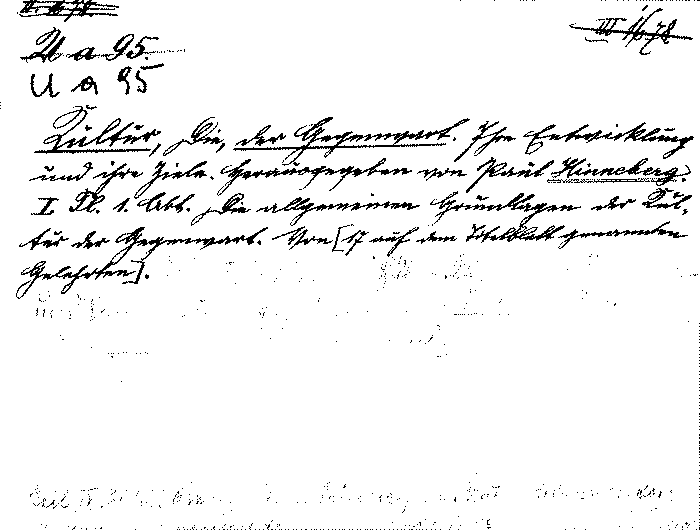 III 1/678
U a 95.
U a 95
Kultur, Die, der Gegenwart. Ihre Entwicklung
und ihre Ziele. Herausgegeben von Paul Hinneberg.
I. Tl. 1. Abt. Die allgemeinen Grundlagen der Kul-
tur der Gegenwart. Von [17 auf dem Titelblatt genannten
Gelehrten].